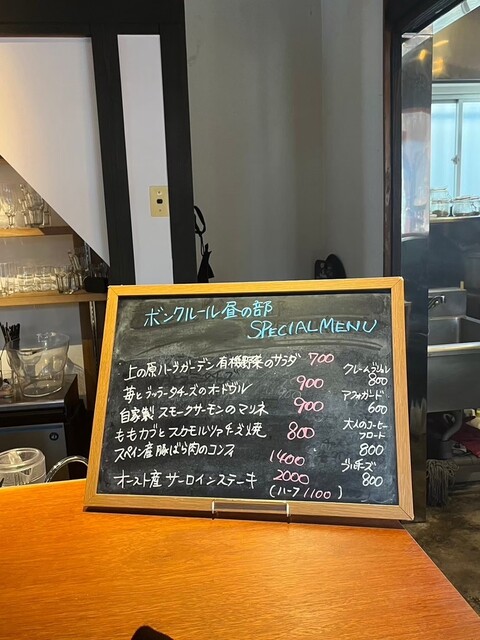 ボンクルール昼の部
SPECIAL MENU
上の原ハーブガーデン有機野菜のサラダ 700
苺とブッラータチーズのオードヴル 900
自家製スモークサーモンのマリネ 900
ももカブとスカモルツァチーズ焼 800
スペイン産豚ばら肉のコンフィ 1400
オースト産サーロインステーキ 2000
(ハーフ1100)
クレームブリュレ
800
アフォガード
600
大人のコーヒー
フロート
800
チーズ
800